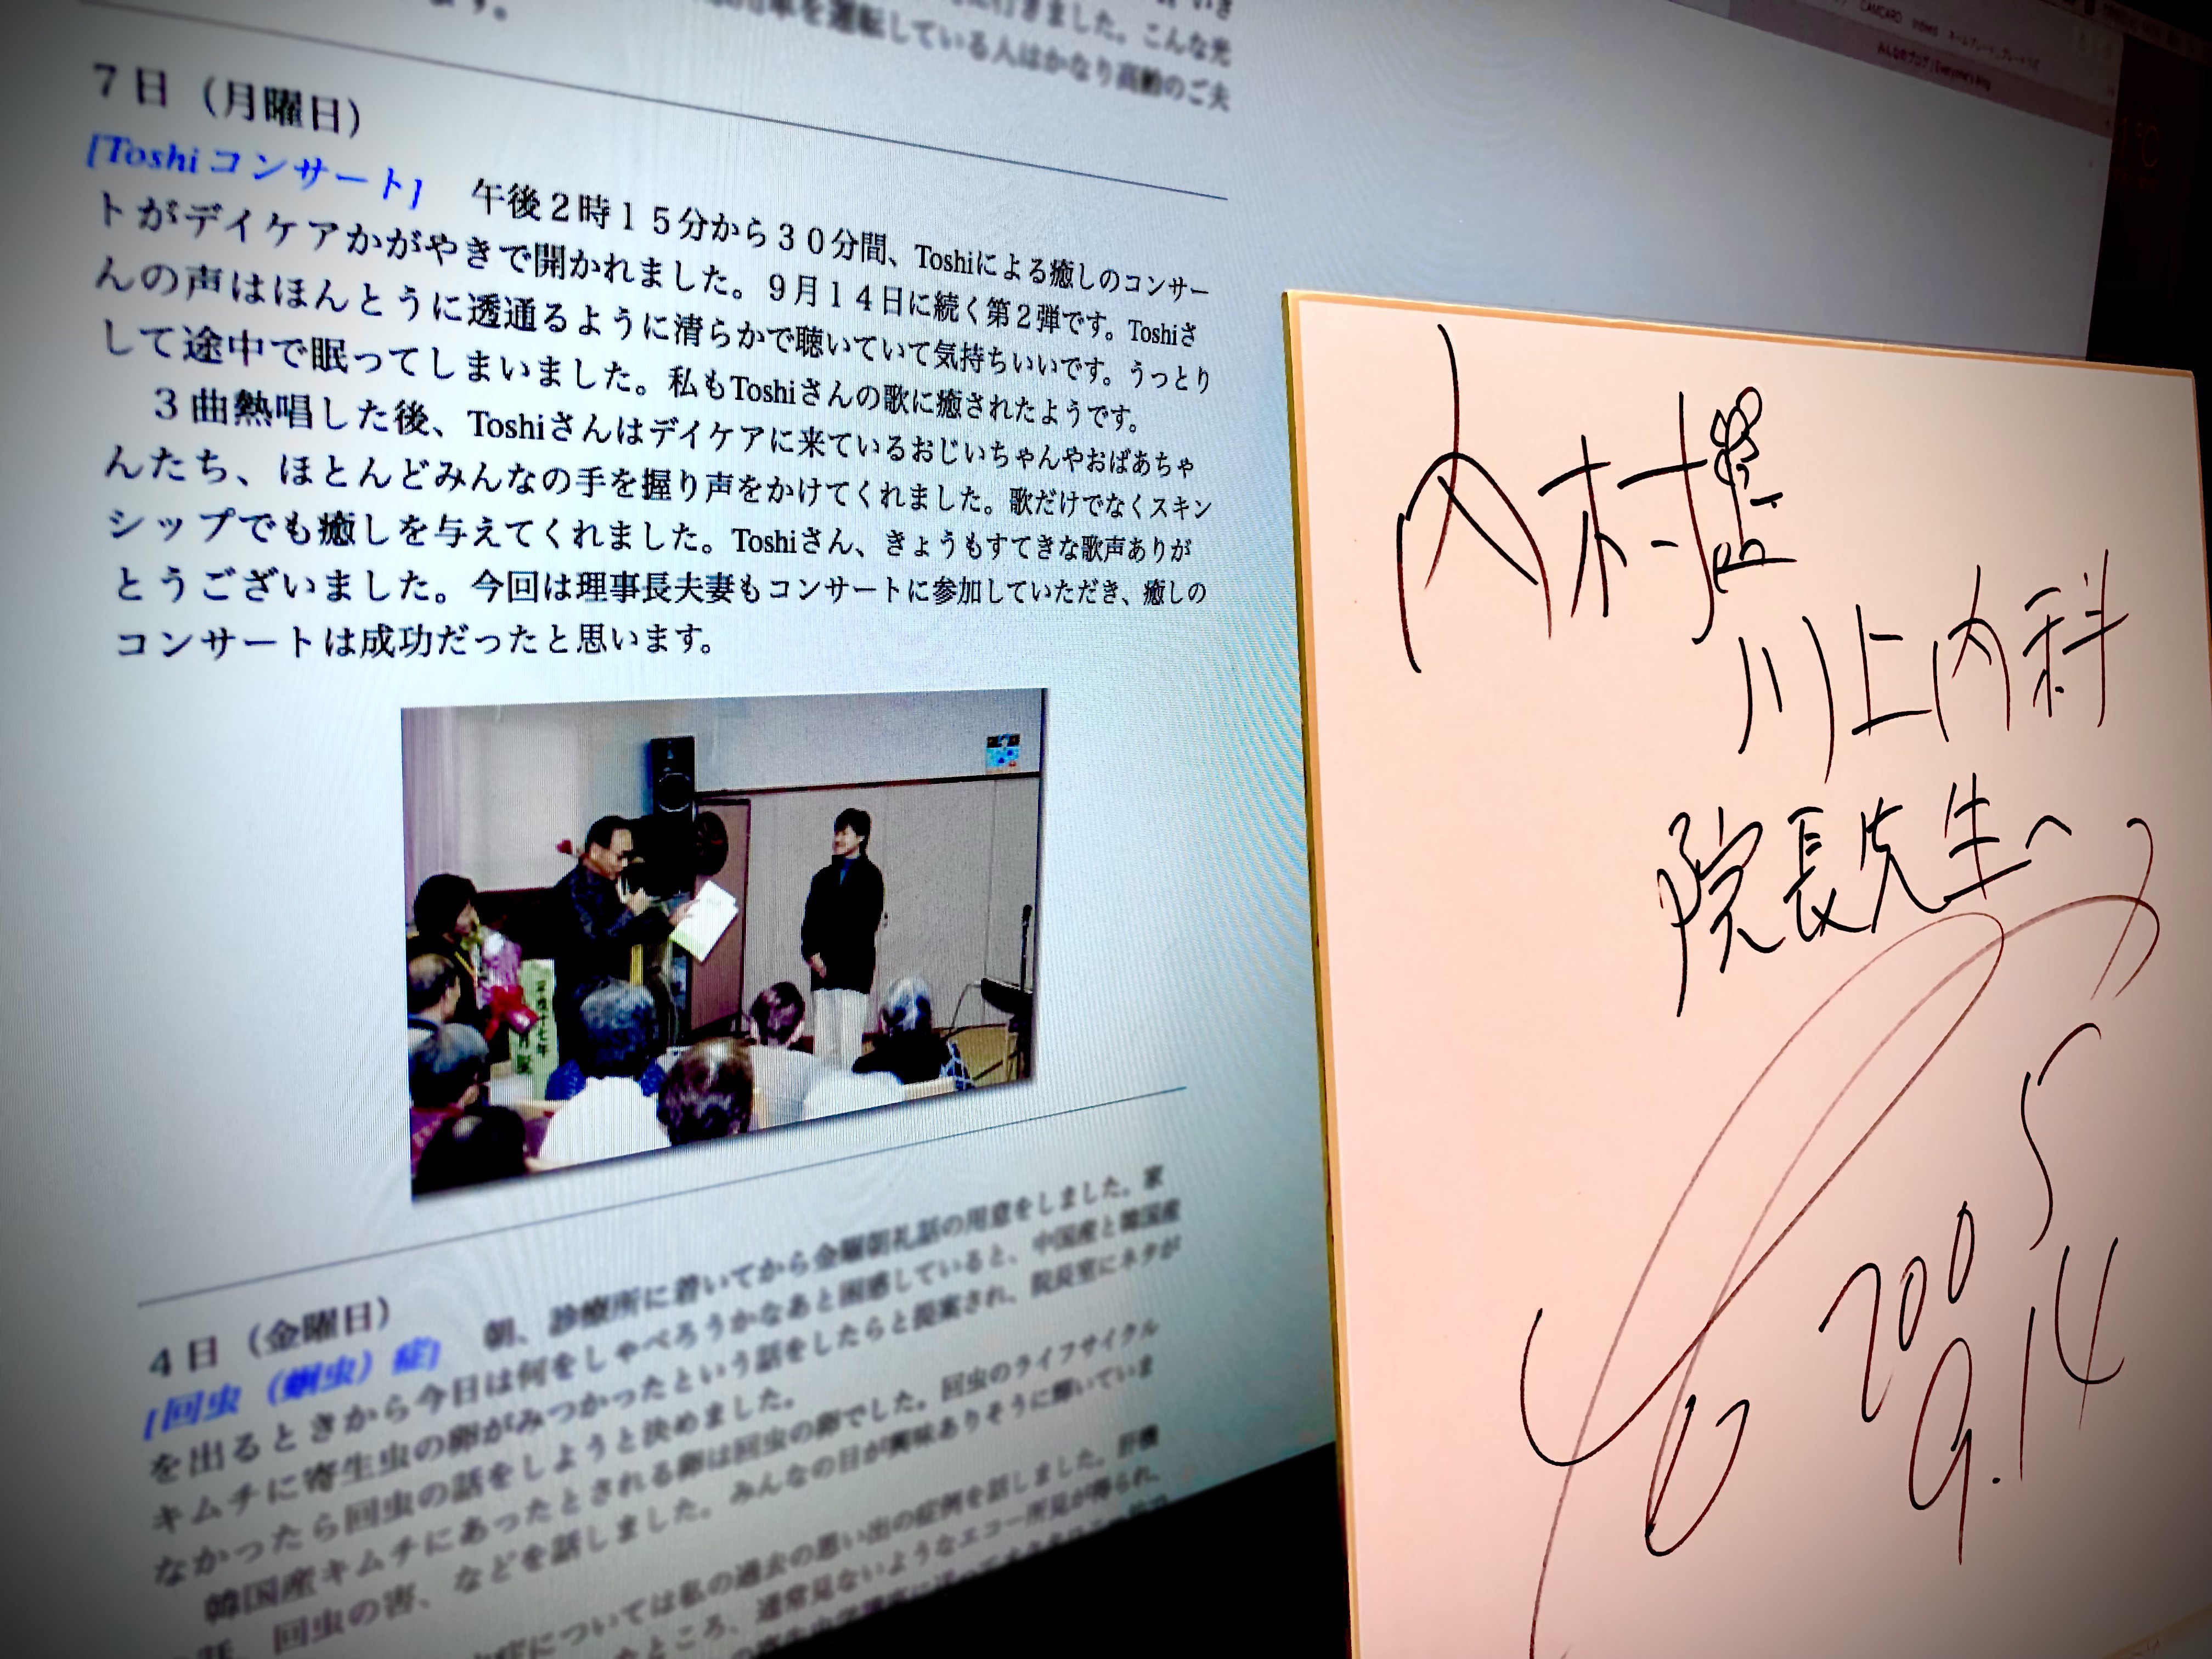 に行きました。こんな光
車を運転している人はかなり高齢のご夫
7日（月曜日）
[Toshiコンサート]　午後2時15分から30分間、Toshiによる癒しのコンサー
トがデイケアかがやきで開かれました。9月14日に続く第2弾です。Toshiさ
んの声はほんとうに透通るように清らかで聴いていて気持ちいいです。うっとり
して途中で眠ってしまいました。私もToshiさんの歌に癒されたようです。
3曲熱唱した後、Toshiさんはデイケアに来ているおじいちゃんやおばあちゃ
んたち、ほとんどみんなの手を握り声をかけてくれました。歌だけでなくスキン
シップでも癒しを与えてくれました。Toshiさん、きょうもすてきな歌声ありが
とうございました。今回は理事長夫妻もコンサートに参加していただき、癒しの
コンサートは成功だったと思います。
4日（金曜日）
[回虫（蛔虫）症]　朝、診療所に着いてから金曜朝礼話の用意をしました。家
を出るときから今日は何をしゃべろうかなあと困惑していると、中国産と韓国産
キムチに寄生虫の卵がみつかったという話をしたらと提案され、院長室にネタが
なかったら回虫の話をしようと決めました。
韓国産キムチにあったとされる卵は回虫の卵でした。回虫のライフサイクル
話、回虫の害、などを話しました。みんなの目が興味ありそうに輝いていま
症については私の過去の思い出の症例を話しました。肝機
たところ、通常見ないようなエコー所見が得られ、
CAMCARD
みんなのブログ | Everyone's blog
内村
川上内科
院長先生へ
2005
9.14